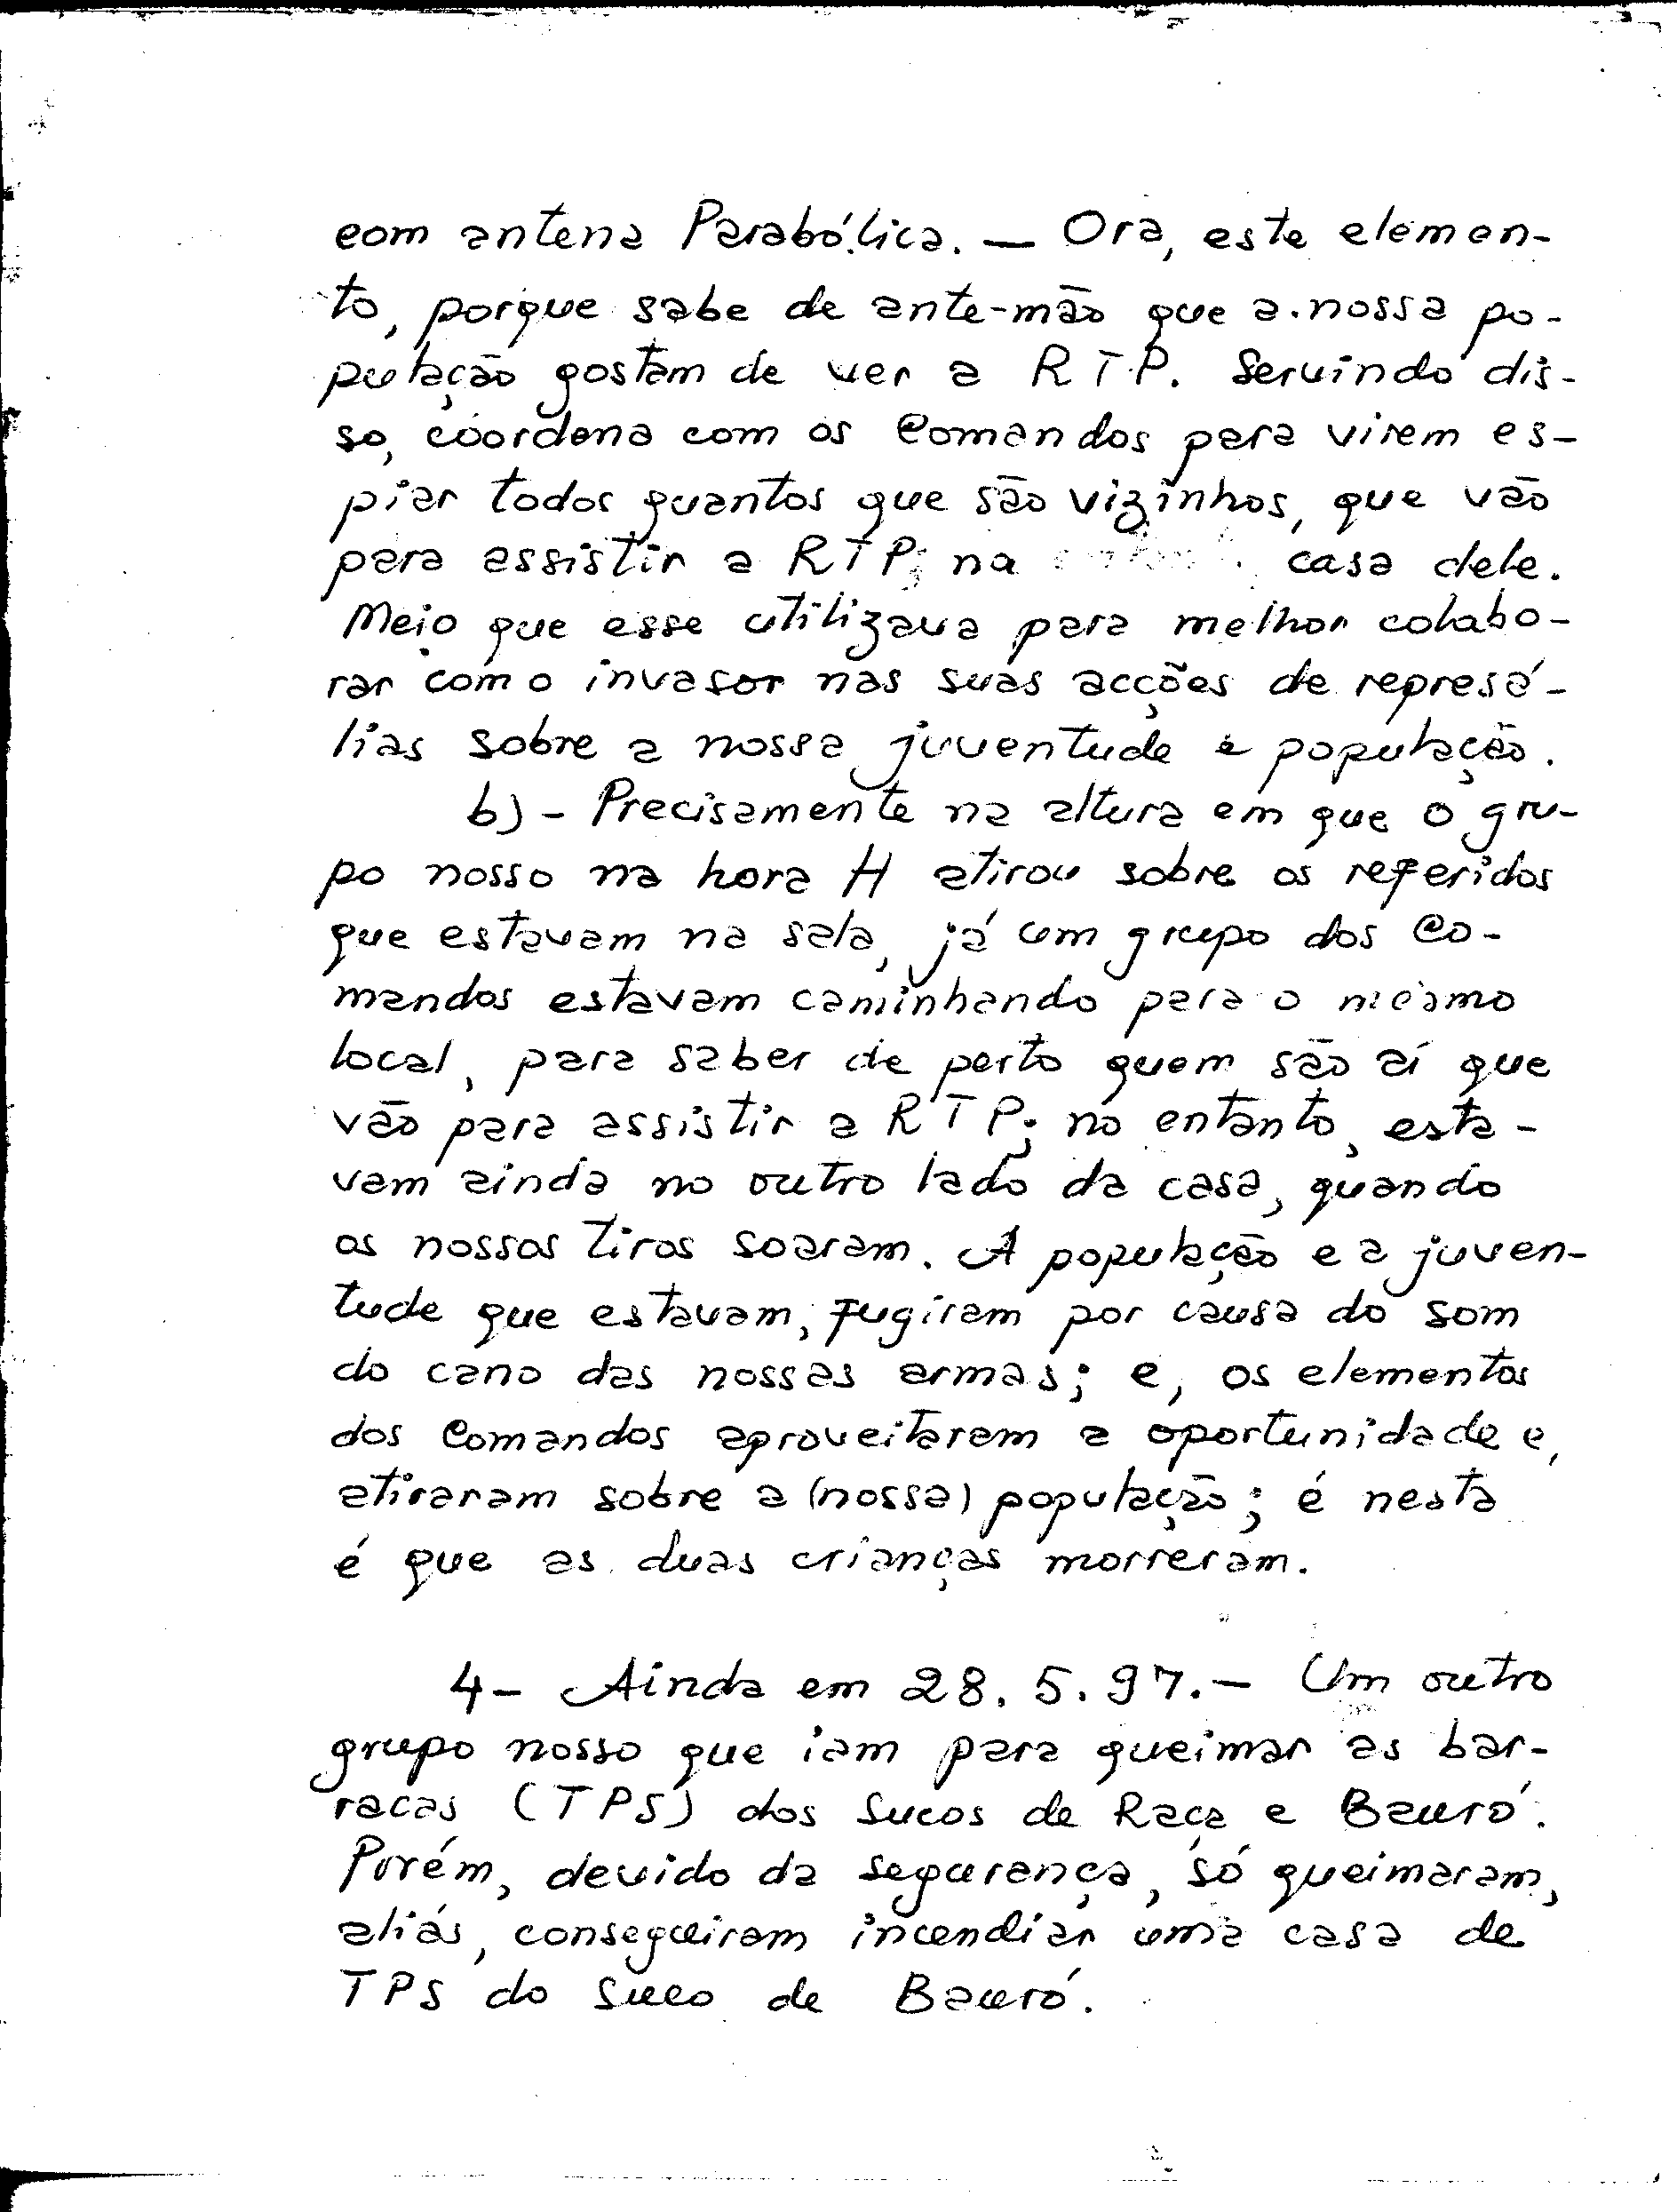 com antena Parabólica. — Ora, este elemen-
to, porque sabe de ante-mão que a nossa po-
pulação gostam de ver a RTP. Servindo dis-
so, coordena com os Comandos para virem es-
piar todos quantos que são vizinhos, que vão
para assistir a RTP; na casa dele.
Meio que esse utilizava para melhor colabo-
rar com o invasor nas suas acções de represá-
lias sobre a nossa juventude e população.
b) - Precisamente na altura em que o gru-
po nosso na hora H atirou sobre os referidos
que estavam na sala, já um grupo dos Co-
mandos estavam caminhando para o mesmo
local, para saber de perto quem são aí que
vão para assistir a RTP; no entanto, esta-
vam ainda no outro lado da casa, quando
os nossos tiros soaram. A população e a juven-
tude que estavam, fugiram por causa do som
do cano das nossas armas; e, os elementos
dos Comandos aproveitaram a oportunidade e,
atiraram sobre a (nossa) população; é nesta
é que as duas crianças morreram.
4- Ainda em 28.5.97. — Um outro
grupo nosso que iam para queimar as bar-
racas (TPS) dos Sucos de Raça e Bauró.
Porém, devido da segurança, só queimaram,
aliás, conseguiram incendiar uma casa de
TPS do Suco de Bauró.